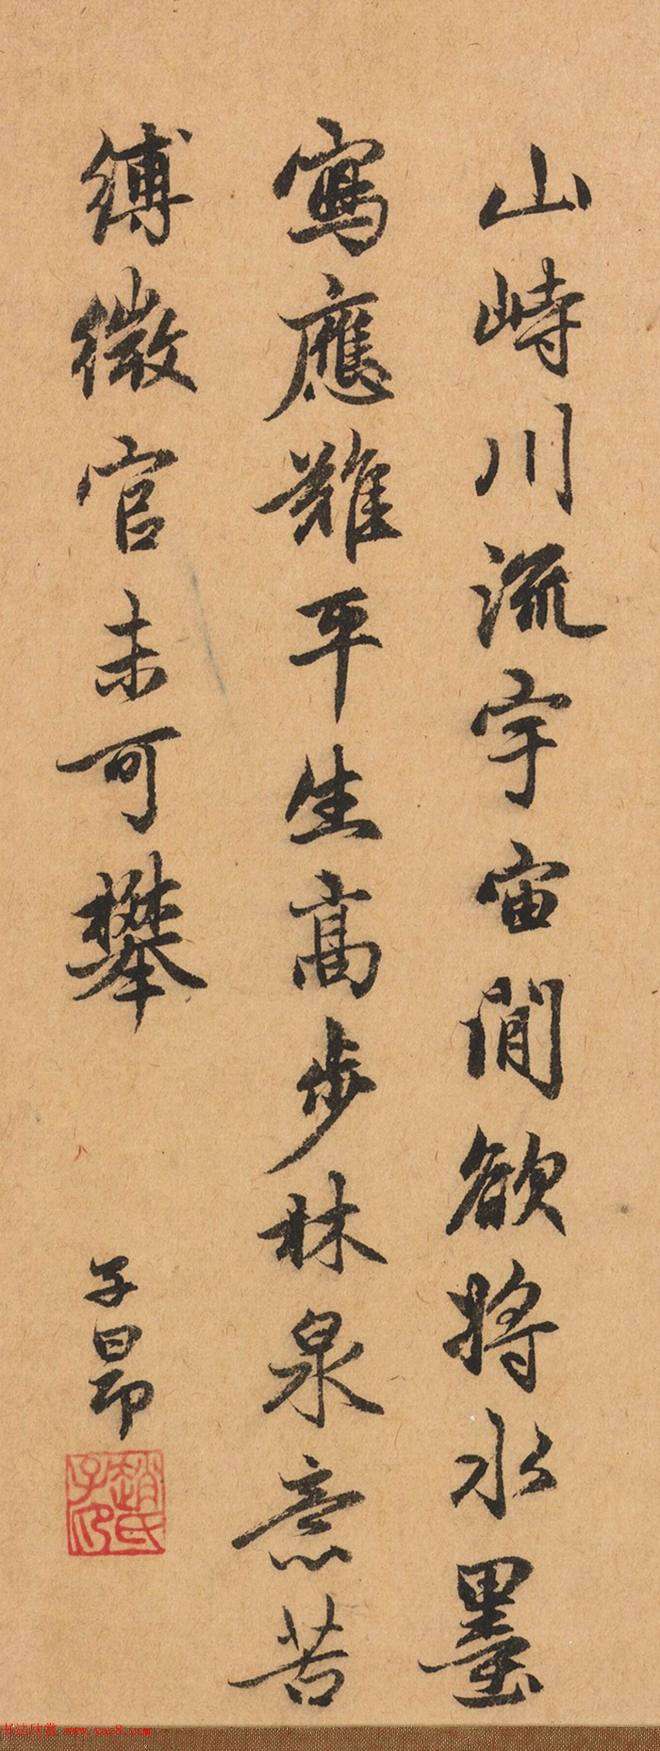 山峙川流宇宙間欲將水墨
寫應難平生高步林泉意苦
縛微官未可攀
子昂
趙氏子印
书法欣赏 www.yac8.com